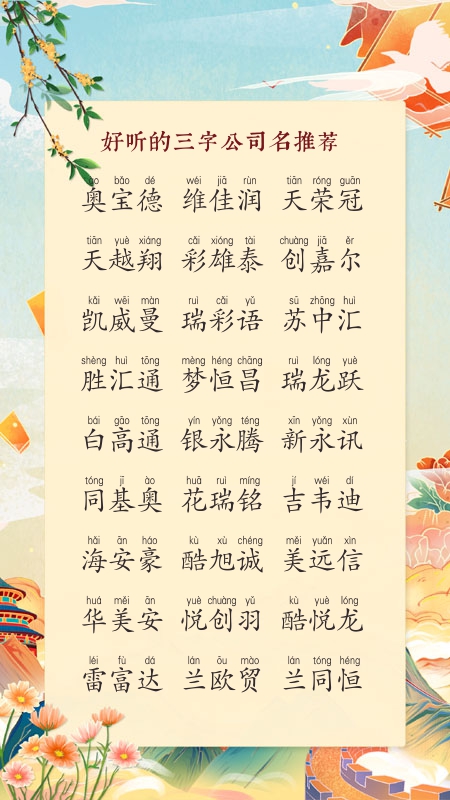 好听的三字公司名推荐
ào bǎo dé wéi jiā rùn tiān róng guān
奥宝德 维佳润 天荣冠
tiān yuè xiáng cǎi xióng tài chuàng jiā ěr
天越翔 彩雄泰 创嘉尔
kǎi wēi màn ruì cǎi yǔ sū zhōng huì
凯威曼 瑞彩语 苏中汇
shèng huì tōng mèng héng chāng ruì lóng yuè
胜汇通 梦恒昌 瑞龙跃
bái gāo tōng yín yǒng téng xīn yǒng xùn
白高通 银永腾 新永讯
tóng jī ào huā ruì míng jí wéi dí
同基奥 花瑞铭 吉韦迪
hǎi ān háo kù xù chéng měi yuǎn xìn
海安豪 酷旭诚 美远信
huá měi ān yuè chuàng yǔ kù yuè lóng
华美安 悦创羽 酷悦龙
léi fù dá lán ōu mào lán tóng héng
雷富达 兰欧贸 兰同恒